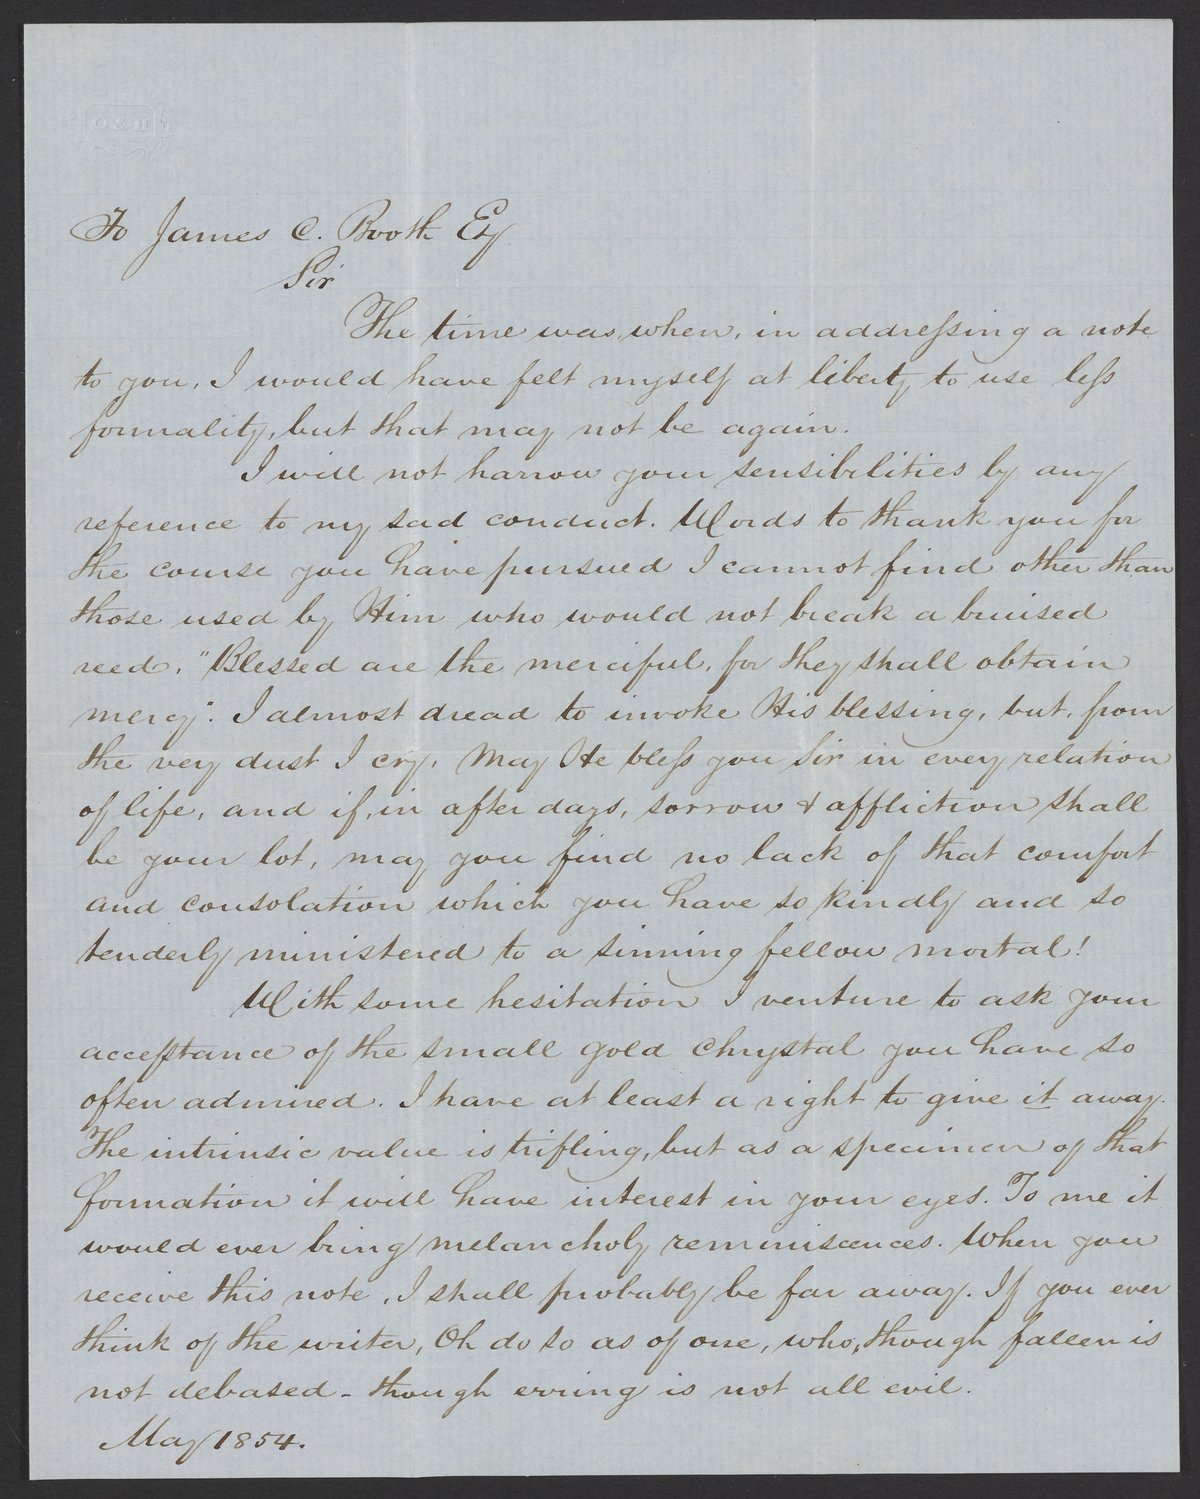 O & H
To James C. Booth Esq
Sir
The time was, when, in addressing a note
to you, I would have felt myself at liberty to use less
formality, but that may not be again.
I will not harrow your sensibilities by any
reference to my sad conduct. Words to thank you for
the course you have pursued I cannot find other than
those used by Him who would not break a bruised
reed, "Blessed are the merciful, for they shall obtain
mercy". I almost dread to invoke His blessing, but, from
the very dust I cry, May He bless you Sir in every relation
of life, and if, in after days, sorrow & affliction shall
be your lot, may you find no lack of that comfort
and consolation which you have so kindly and so
tenderly ministered to a sinning fellow mortal!
With some hesitation I venture to ask your
acceptance of the small gold chrystal you have so
often admired. I have at least a right to give it away.
The intrinsic value is trifling, but as a specimen of that
formation it will have interest in your eyes. To me it
would ever bring melancholy reminiscences. When you
receive this note, I shall probably be far away. If you ever
think of the writer, Oh do so as of one, who, though fallen is
not debased - though erring is not all evil.
May 1854.